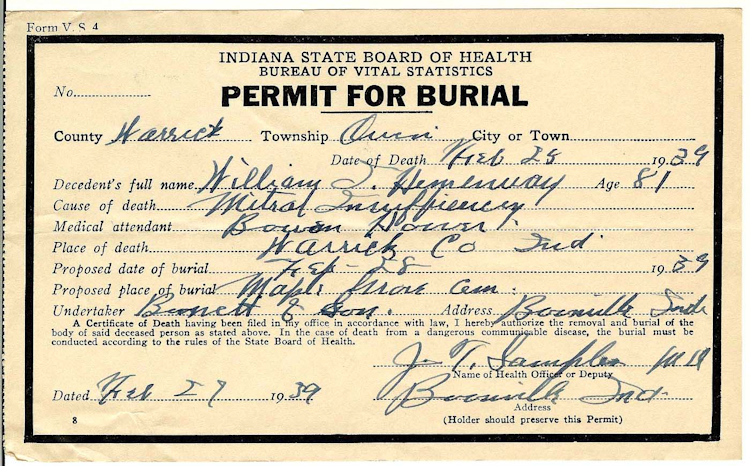 Form V. S. 4
INDIANA STATE BOARD OF HEALTH
BUREAU OF VITAL STATISTICS
No.
PERMIT FOR BURIAL
County Warrick Township Owen City or Town
Date of Death Feb 25 1939
Decedent's full name William J. Hemenway Age 81
Cause of death Mitral Insufficiency
Medical attendant
Place of death Warrick Co Ind
Proposed date of burial Feb - 28 1939
Proposed place of burial Maple Grove Cem.
Undertaker & Son. Address Boonville Ind
A Certificate of Death having been filed in my office in accordance with law, I hereby authorize the removal and burial of the
body of said deceased person as stated above. In the case of death from a dangerous communicable disease, the burial must be
conducted according to the rules of the State Board of Health.
J. T. Samples MD
Name of Health Officer or Deputy
Dated Feb 27 1939 Boonville Ind.
Address
8 (Holder should preserve this Permit)